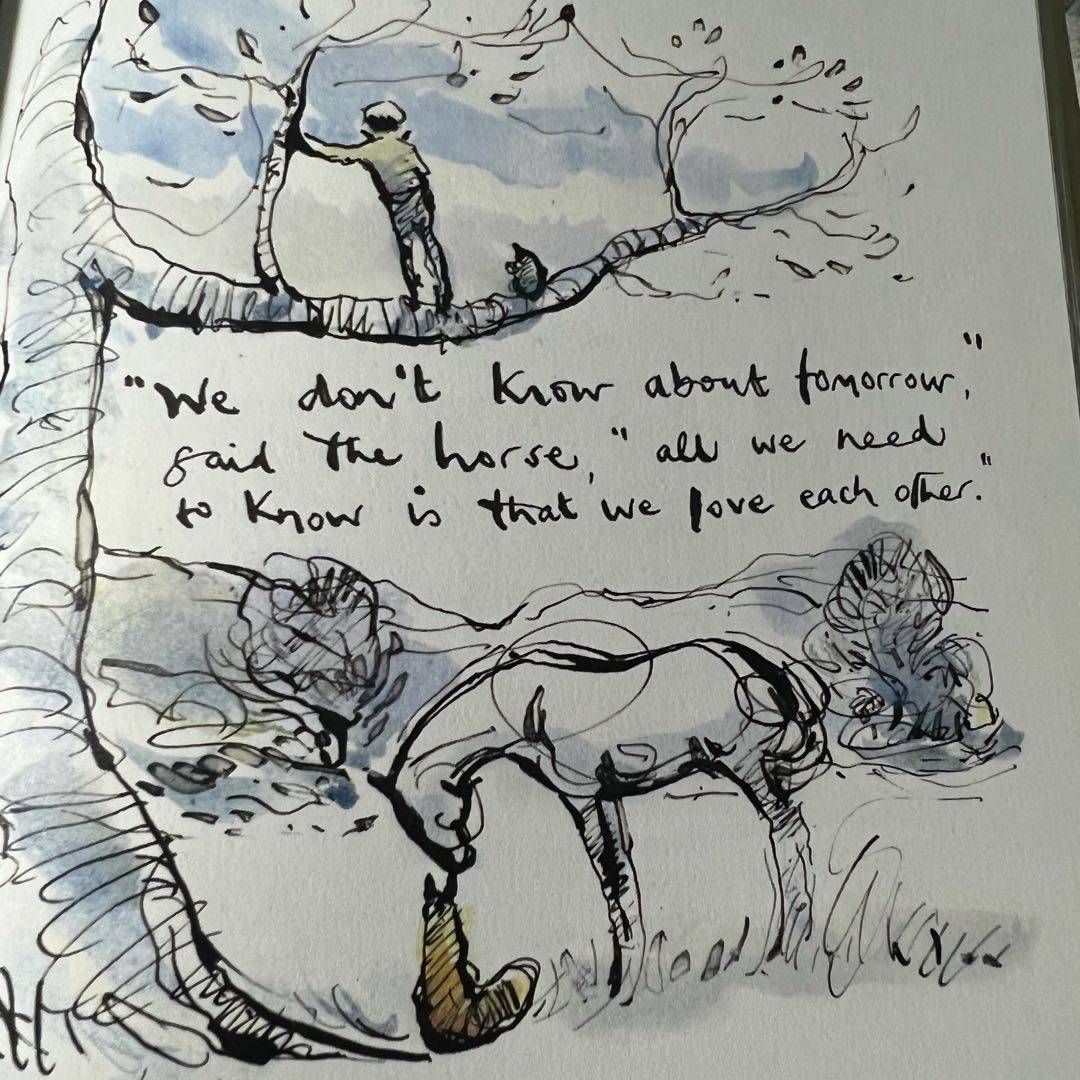 "We don't know about tomorrow,"
said the horse, "all we need
to know is that we love each other."